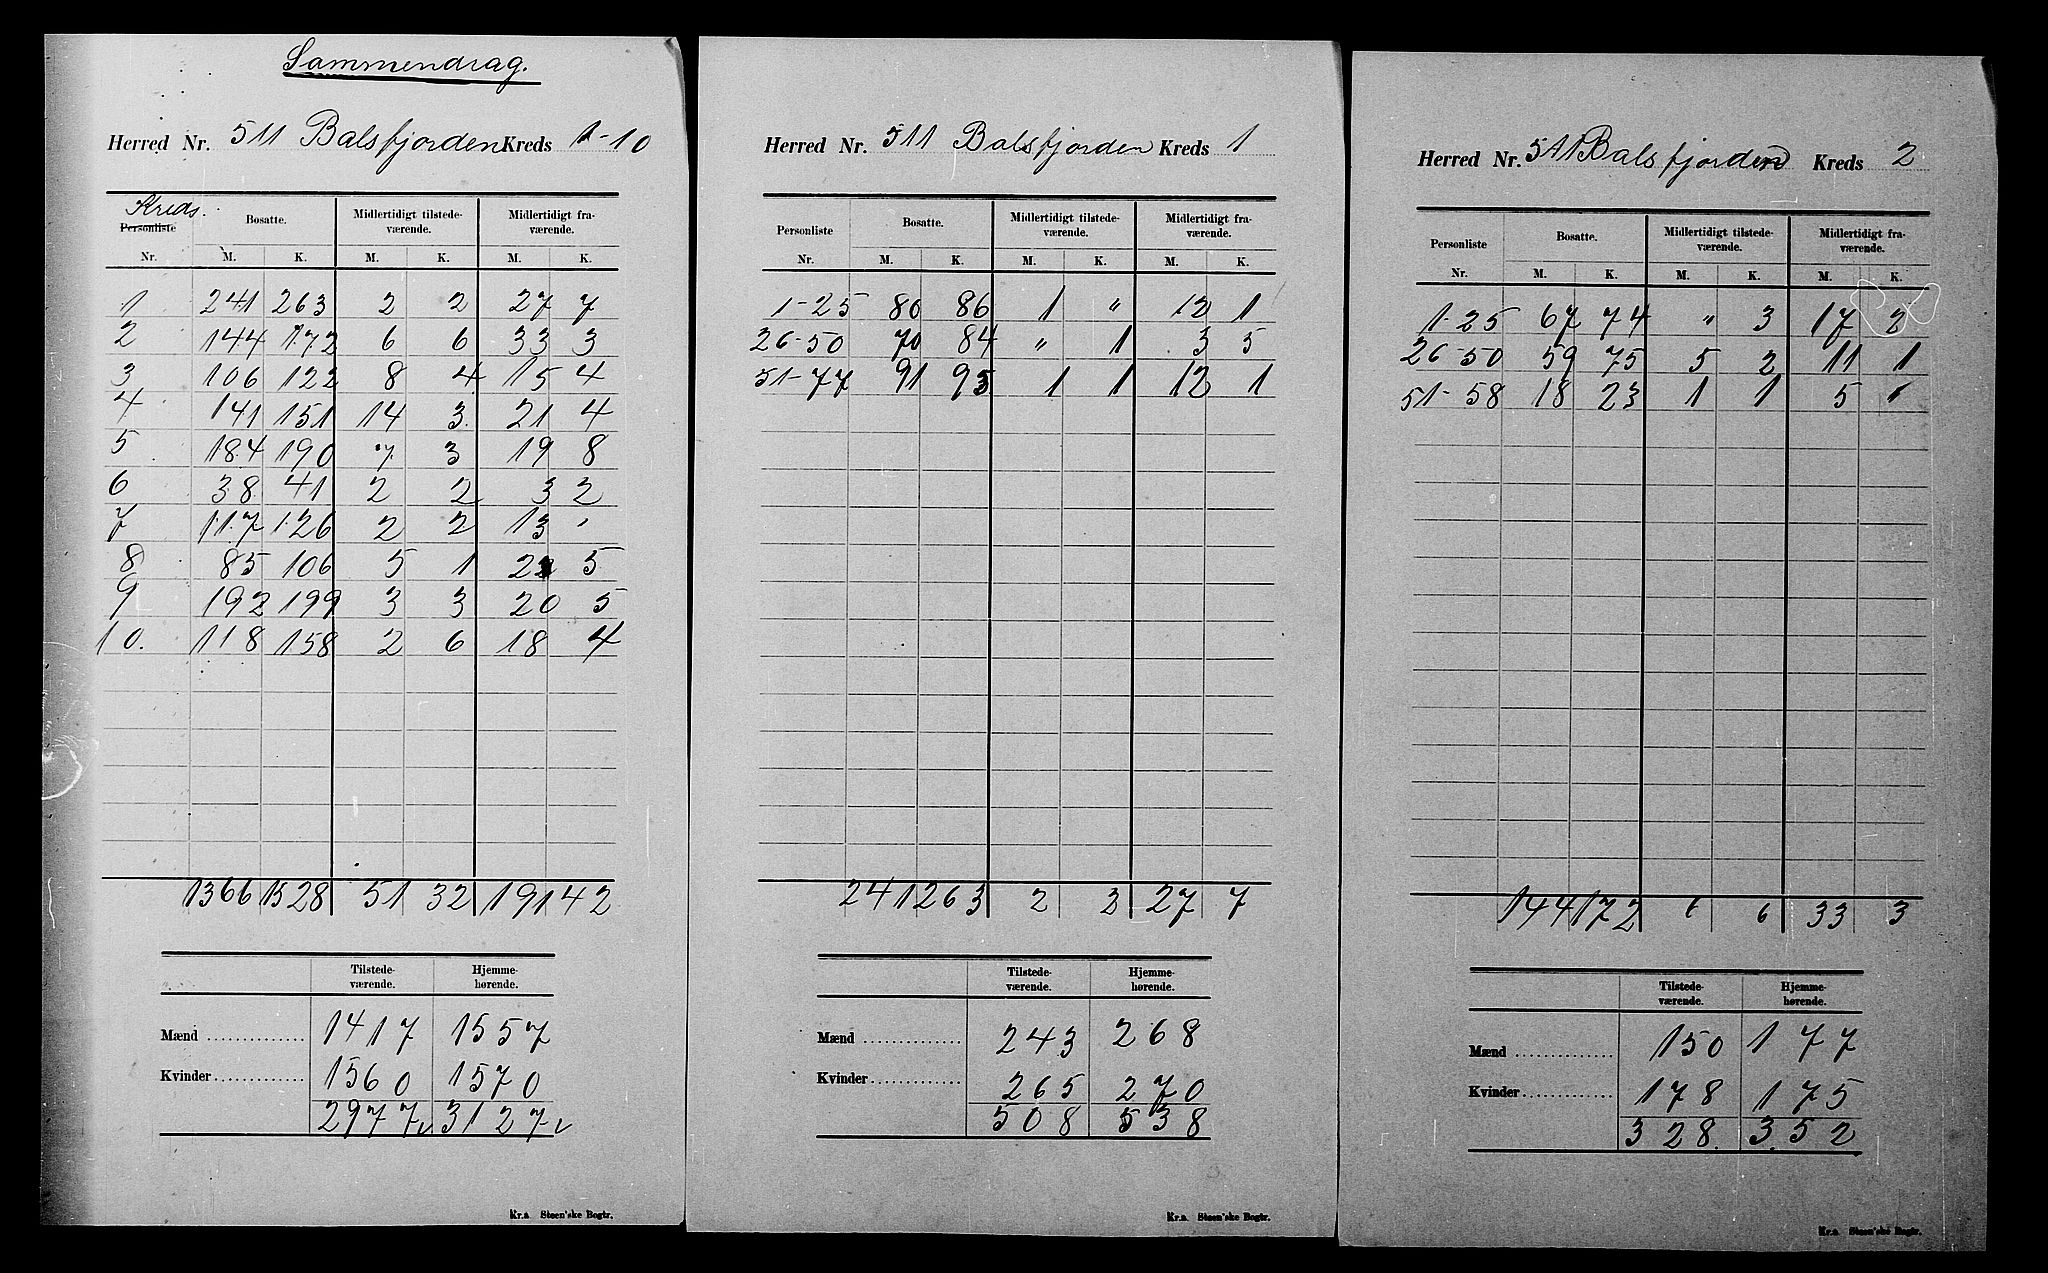 Sammendrag.
Herred Nr. 511 Balsfjorden Kreds 1-10
Kreds.
Personliste Bosatte. Midlertidigt tilstede- Midlertidigt fra-
værende. værende.
Nr. M. K. M. K. M. K.
1 241 263 2 2 27 7
2 144 172 6 6 33 3
3 106 122 8 4 15 4
4 141 151 14 3 21 4
5 184 190 7 3 19 8
6 38 41 2 2 3 2
7 117 126 2 2 13 "
8 85 106 5 1 22 5
9 192 199 3 3 20 5
10. 118 158 2 6 18 4
1366 1528 51 32 191 42
Tilstede- Hjemme-
værende. hørende.
Mænd 1417 1557
Kvinder 1560 1570
2977 3127
Kr.a Steen'ske Bogtr.
Herred Nr. 511 Balsfjorden Kreds 1
Personliste Bosatte. Midlertidigt tilstede- Midlertidigt fra-
værende. værende.
Nr. M. K. M. K. M. K.
1-25 80 86 1 " 12 1
26-50 70 84 " 1 3 5
51-77 91 93 1 1 12 1
241 263 2 2 27 7
Tilstede- Hjemme-
værende. hørende.
Mænd 243 268
Kvinder 265 270
508 538
Kr.a. Steen'ske Bogtr.
Herred Nr. 511 Balsfjorden Kreds 2
Personliste Bosatte. Midlertidigt tilstede- Midlertidigt fra-
værende. værende.
Nr. M. K. M. K. M. K.
1-25 67 74 " 3 17 2
26-50 59 75 5 2 11 1
51-58 18 23 1 1 5 "
144 172 6 6 33 3
Tilstede- Hjemme-
værende. hørende.
Mænd 150 177
Kvinder 178 175
328. 352
Kr.a Steen'ske Bogtr.